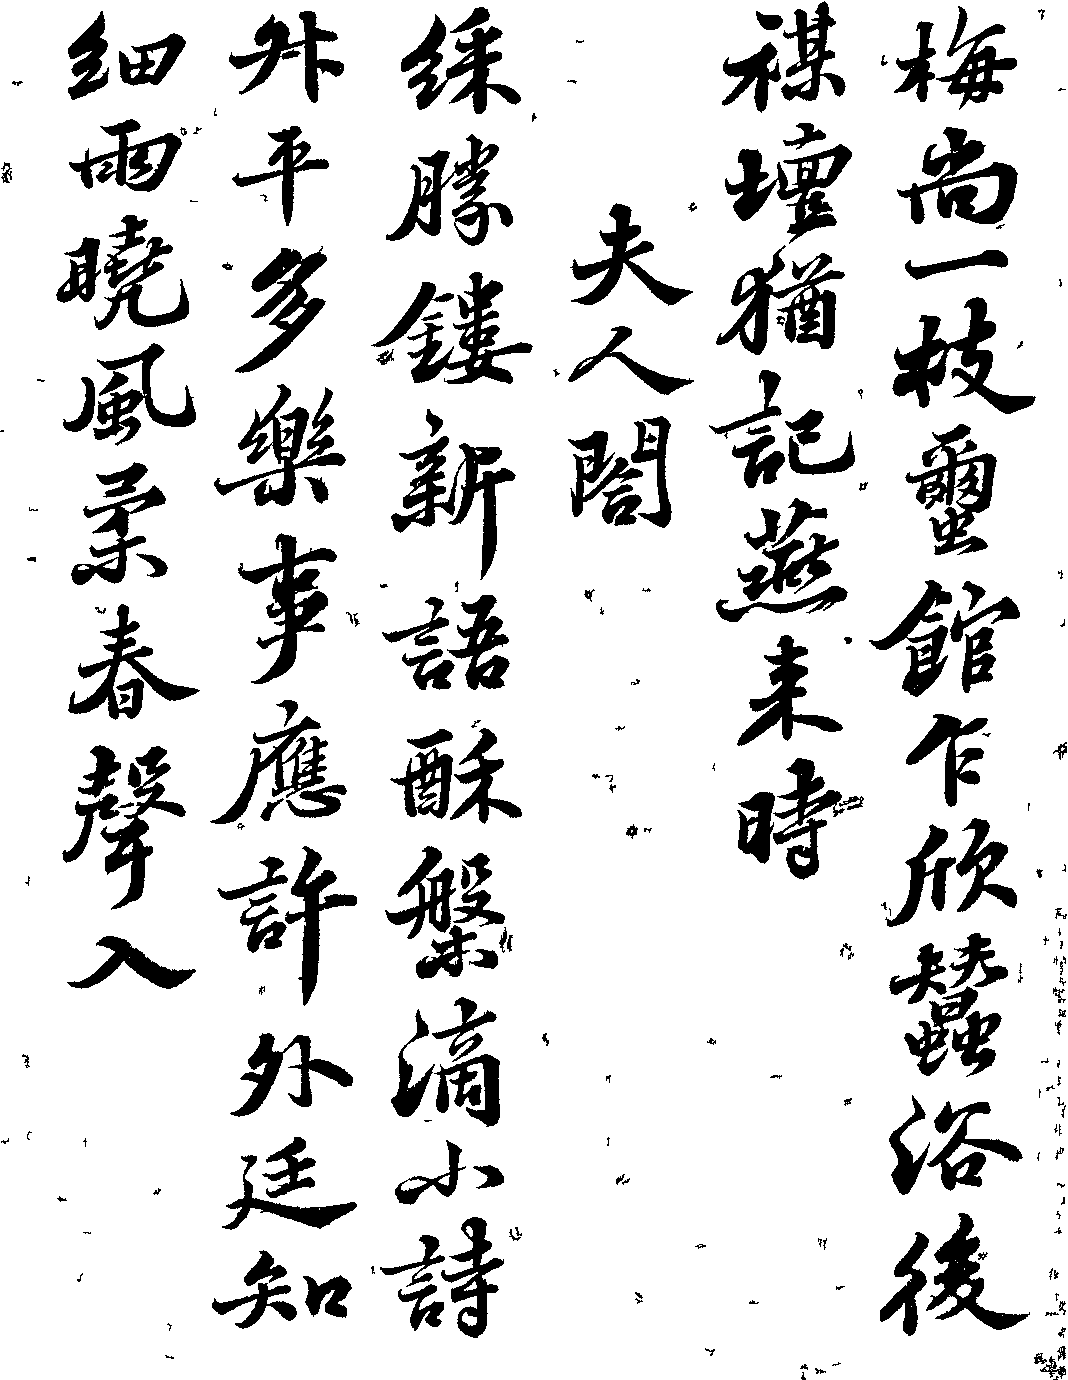 梅尚一枝蠒館乍欣蠶浴後
禖壇猶記燕来時
夫人閤
綵勝鏤新語酥槃滴小詩
升平多樂事應許外廷知
細雨曉風柔春聲入